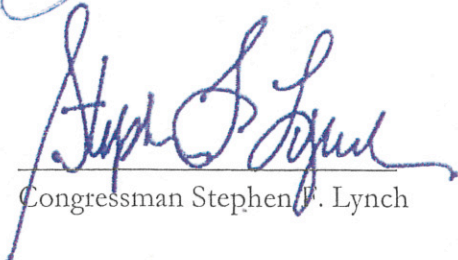 Stephen F. Lynch
Congressman Stephen F. Lynch